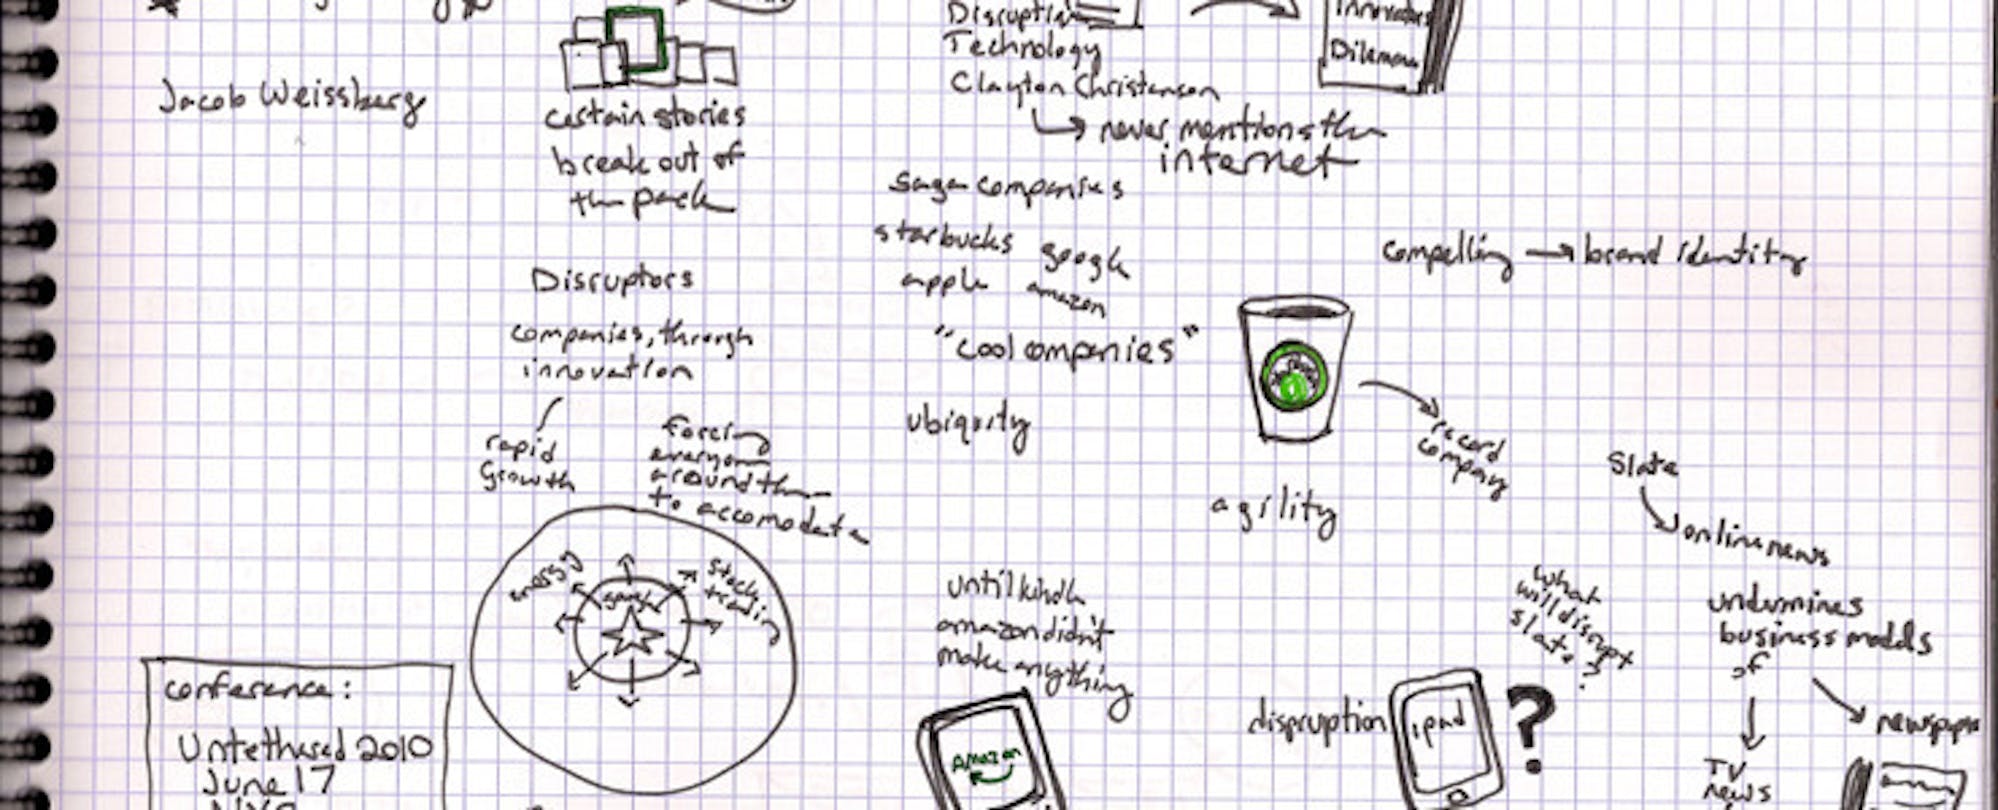 Jacob Weissberg
certain stories
break out of
the pack
Disruptors
companies, through
innovation
rapid
Growth
forcing
everyone
around them
to accomodate
energy
google
stock
trading
conference:
Untethered 2010
June 17
NYC
Disruptive
Technology
Clayton Christensen
never mentions the
internet
Innovators
Dilemma
saga companies
starbucks google
apple amazon
"cool companies"
ubiquity
agility
compelling → brand identity
record
company
until kindle
amazon didn't
make anything
Amazon
Slate
online news
undermines
business models
of
newspaper
TV
news
what
will disrupt
slate?
dispruption
ipad
?